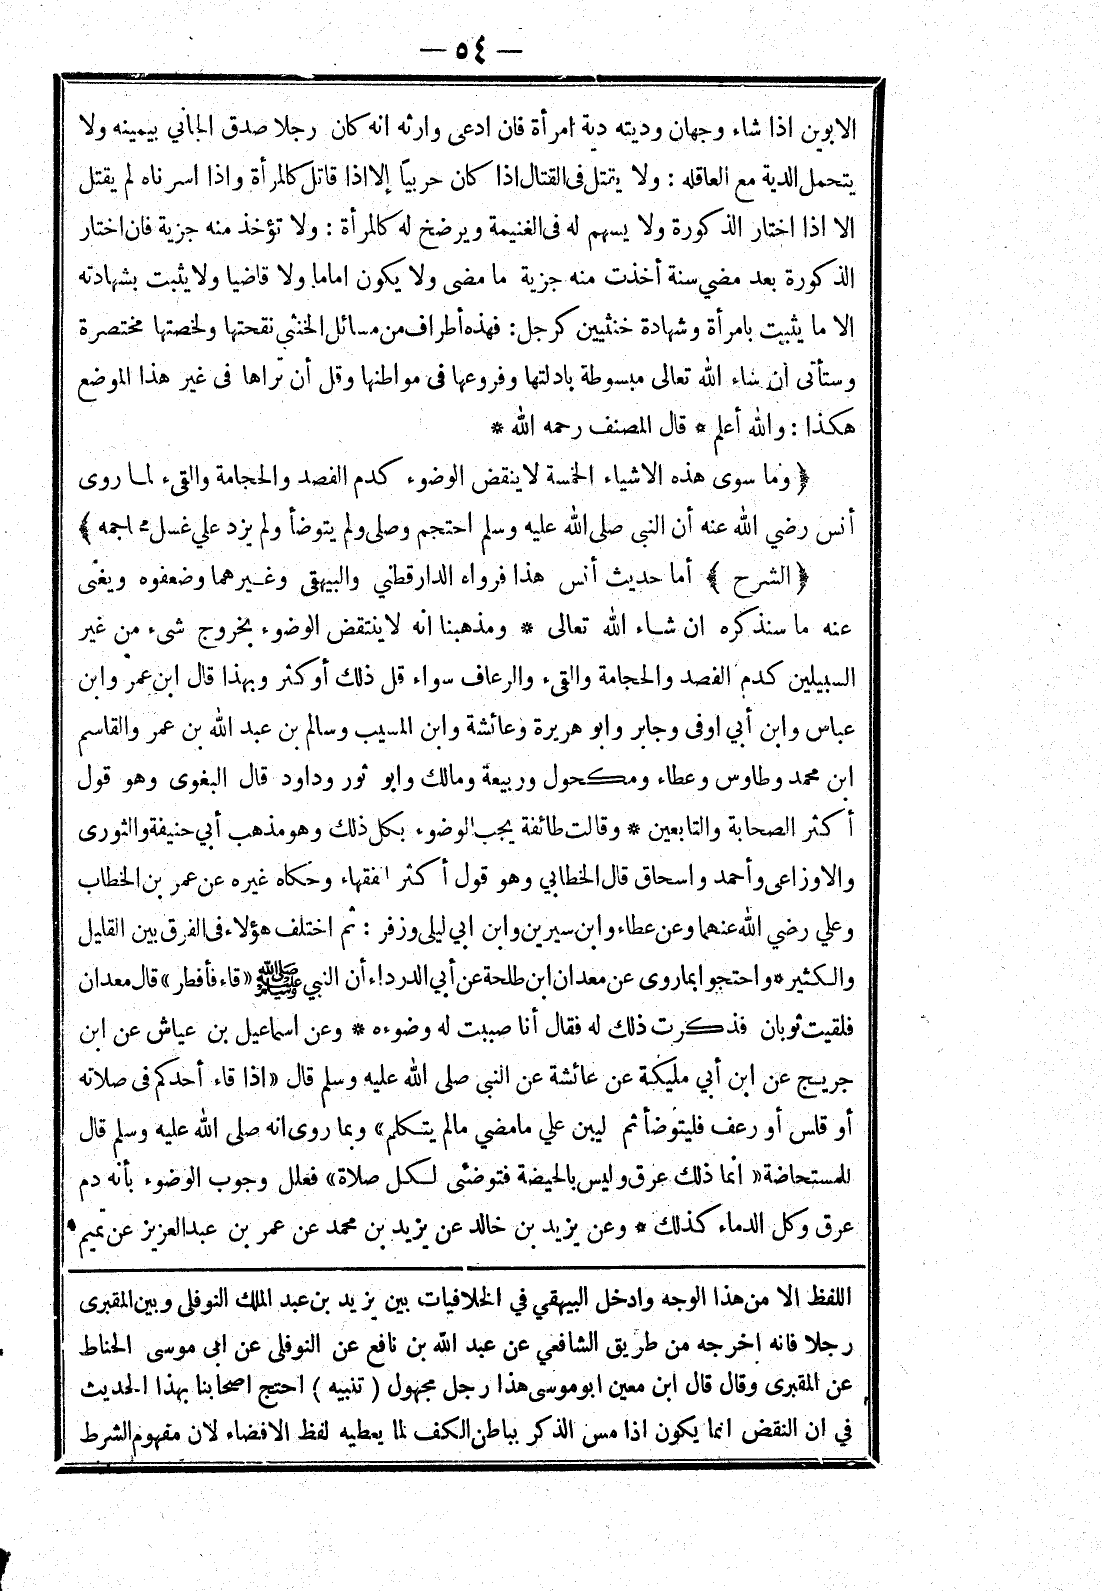 — ٥٤ —
الابوين اذا شاء وجهان وديته دية امرأة فان ادعى وارثه انه كان رجلا صدق الجاني بيمينه ولا
يتحمل الدية مع العاقله : ولا يقتل فى القتال اذا كان حربياً إلا اذا قاتل كالمرأة واذا اسرناه لم يقتل
الا اذا اختار الذكورة ولا يسهم له فى الغنيمة ويرضخ له كالمرأة : ولا تؤخذ منه جزية فان اختار
الذكورة بعد مضي سنة أخذت منه جزية ما مضى ولا يكون اماما ولا قاضيا ولا يثبت بشهادته
الا ما يثبت بامرأة وشهادة خنثيين كرجل : فهذه أطراف من مسائل الخنثى نقحتها ولخصتها مختصرة
وستأتى ان شاء الله تعالى مبسوطة بادلتها وفروعها فى مواطنها وقل أن تراها فى غير هذا الموضع
هكذا : والله أعلم * قال المصنف رحمه الله *
﴿ وما سوى هذه الاشياء الخمسة لا ينقض الوضوء كدم الفصد والحجامة والقيء لما روى
أنس رضي الله عنه أن النبى صلى الله عليه وسلم احتجم وصلى ولم يتوضأ ولم يزد علي غسل محاجمه ﴾
﴿ الشرح ﴾ أما حديث أنس هذا فرواه الدارقطني والبيهقى وغيرهما وضعفوه ويغنى
عنه ما سنذكره ان شاء الله تعالى * ومذهبنا انه لا ينتقض الوضوء بخروج شىء من غير
السبيلين كدم الفصد والحجامة والقيء والرعاف سواء قل ذلك أو كثر وبهذا قال ابن عمر وابن
عباس وابن أبي اوفى وجابر وابو هريرة وعائشة وابن المسيب وسالم بن عبد الله بن عمر والقاسم
ابن محمد وطاوس وعطاء ومكحول وربيعة ومالك وابو ثور وداود قال البغوى وهو قول
أكثر الصحابة والتابعين * وقالت طائفة يجب الوضوء بكل ذلك وهو مذهب أبي حنيفة والثورى
والاوزاعى وأحمد واسحاق قال الخطابي وهو قول أكثر الفقهاء وحكاه غيره عن عمر بن الخطاب
وعلي رضي الله عنهما وعن عطاء وابن سيرين وابن ابي ليلى وزفر : ثم اختلف هؤلاء فى الفرق بين القليل
والكثير * واحتجوا بما روى عن معدان ابن طلحة عن أبي الدرداء أن النبي ﷺ « قاء فأفطر » قال معدان
فلقيت ثوبان فذكرت ذلك له فقال أنا صببت له وضوءه * وعن اسماعيل بن عياش عن ابن
جريج عن ابن أبي مليكة عن عائشة عن النبى صلى الله عليه وسلم قال « اذا قاء أحدكم فى صلاته
أو قلس أو رعف فليتوضأ ثم ليبن علي ما مضي مالم يتكلم » وبما روى انه صلى الله عليه وسلم قال
للمستحاضة « انما ذلك عرق وليس بالحيضة فتوضئى لكل صلاة » فعلل وجوب الوضوء بأنه دم
عرق وكل الدماء كذلك * وعن يزيد بن خالد عن يزيد بن محمد عن عمر بن عبدالعزيز عن تميم
اللفظ الا من هذا الوجه وادخل البيهقي في الخلافيات بين يزيد بن عبد الملك النوفلى وبين المقبرى
رجلا فانه اخرجه من طريق الشافعي عن عبد الله بن نافع عن النوفلى عن ابى موسى الحناط
عن المقبرى وقال قال ابن معين ابو موسى هذا رجل مجهول ( تنبيه ) احتج اصحابنا بهذا الحديث
في ان النقض انما يكون اذا مس الذكر بباطن الكف لما يعطيه لفظ الافضاء لان مفهوم الشرط